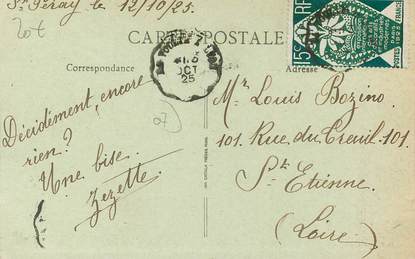 St Péray le 12/10/25.
20t
CARTE POSTALE
Correspondance
Adresse
OCT
25
15c
RF
Décidément, encore
rien?
Une bise.
Zezette.
Mr Louis Bozino.
101. Rue du Creuil. 101.
St Etienne.
(Loire)